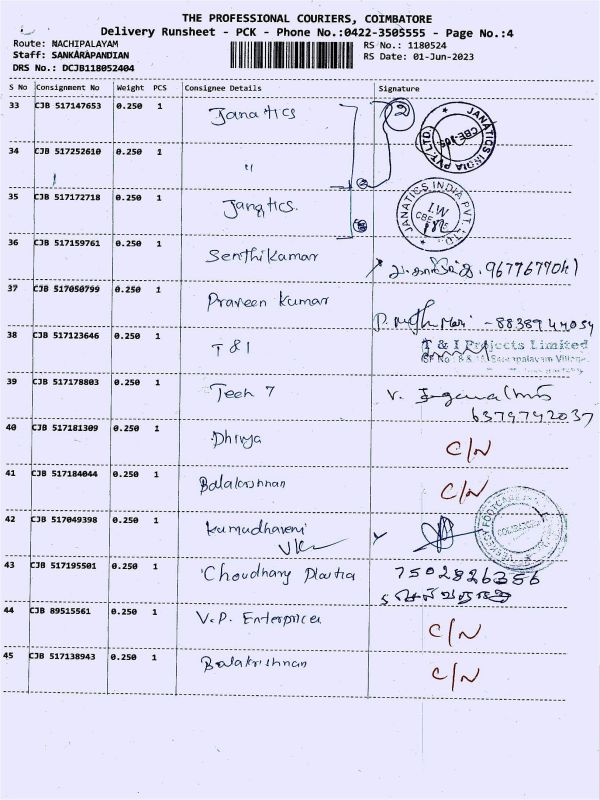 THE PROFESSIONAL COURIERS, COIMBATORE
Delivery Runsheet - PCK - Phone No.:0422-3505555 - Page No.:4
Route: NACHIPALAYAM RS No.: 1180524
Staff: SANKARAPANDIAN RS Date: 01-Jun-2023
DRS No.: DCJB118052404
S No Consignment No Weight PCS Consignee Details Signature
33 CJB 517147653 0.250 1 Janatics 2
JANATICS INDIA PVT. LTD.
34 CJB 517252610 0.250 1 "
35 CJB 517172718 0.250 1 Janatics.
JANATICS INDIA PVT. LTD
I.W
CBE
36 CJB 517159761 0.250 1 Senthilkumar
37 CJB 517050799 0.250 1 Praveen Kumar
38 CJB 517123646 0.250 1 T & I
T & I Projects Limited
39 CJB 517178803 0.250 1 Tech 7 V.
6379742037
40 CJB 517181309 0.250 1 Dhivya C/N
41 CJB 517184044 0.250 1 Balakrishnan C/N
42 CJB 517049398 0.250 1 Kumudhaveni
43 CJB 517195501 0.250 1 Choudhary 7502826356
44 CJB 89515561 0.250 1 V.P. Enterprices C/N
45 CJB 517138943 0.250 1 Balakrishnan C/N